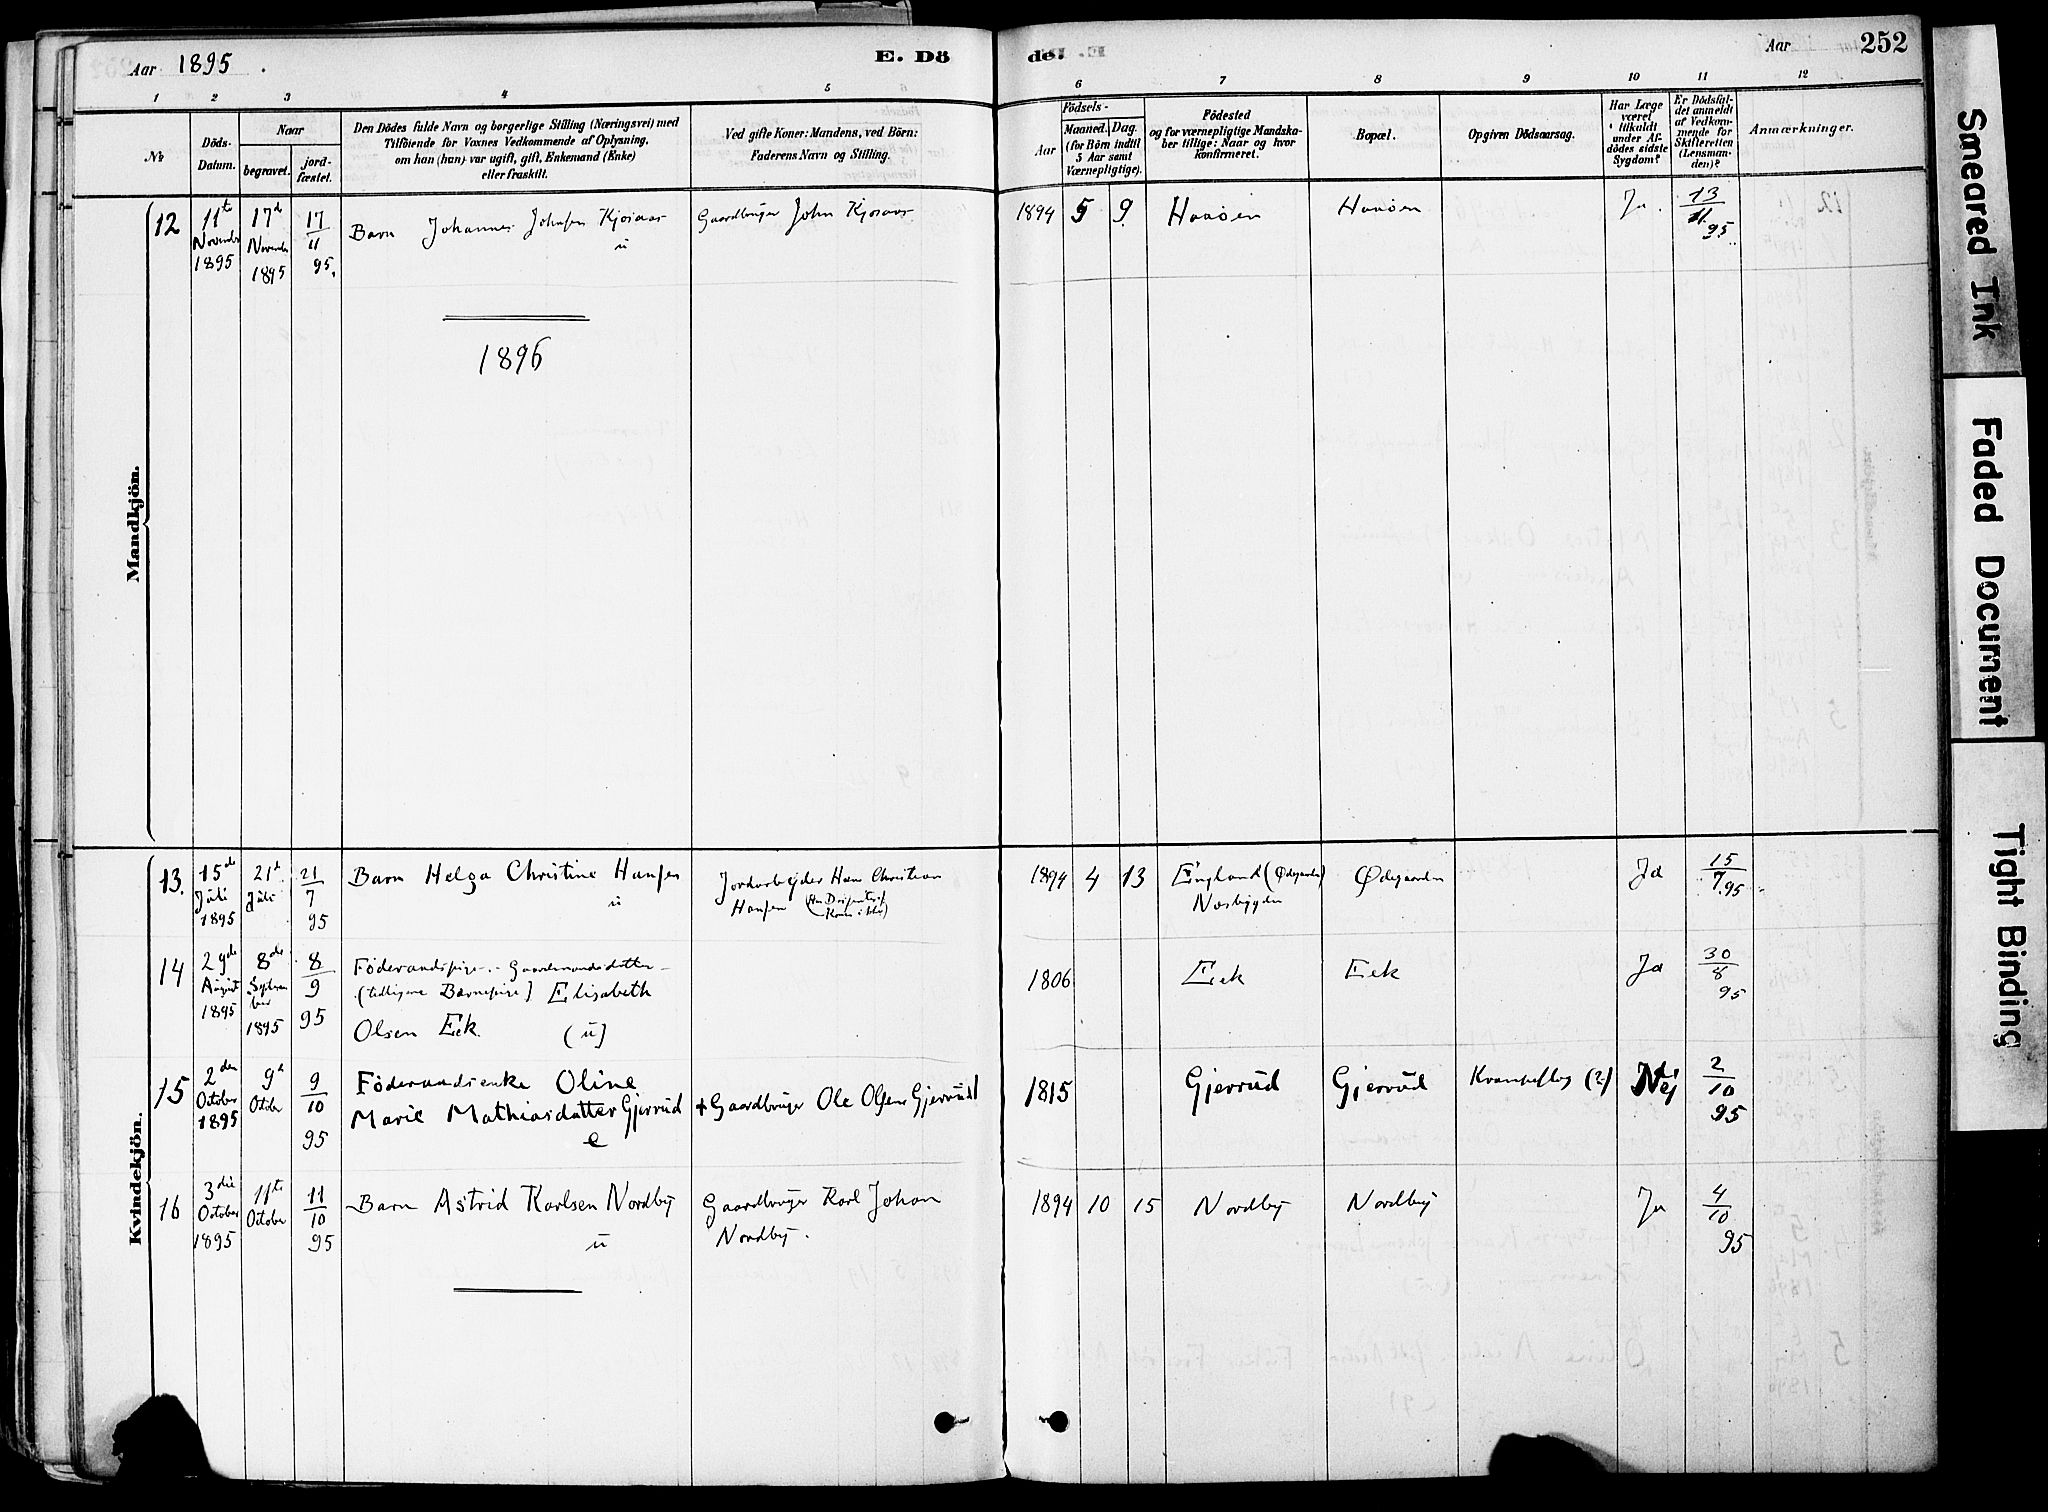 Aar 1895.
E. Dö
de.
Aar
252
1 2 3 4 5 6 7 8 9 10 11 12
№
Döds-
Datum.
Naar
begravet.
jord-
fæstet.
Den Dödes fulde Navn og borgerlige Stilling (Næringsvei) med
Tilföiende for Voxnes Vedkommende af Oplysning,
om han (hun) var ugift, gift, Enkemand (Enke)
eller fraskilt.
Ved gifte Koner: Mandens, ved Börn:
Faderens Navn og Stilling.
Födsels-
Aar
Maaned. Dag.
(for Börn indtil
5 Aar samt
Værnepligtige).
Födested
og for værnepligtige Mandska-
ber tillige: Naar og hvor
konfirmeret.
Bopæl.
Opgiven Dödsaarsag.
Har Læge
været
tilkaldt
under Af-
dödes sidste
Sygdom?
Er Dödsfal-
det anmeldt
af Vedkom-
mende for
Skifteretten
(Lensman-
den)?
Anmærkninger.
Mandkjön.
12
11te
November
1895
17d
November
1895
17
11
95.
Barn Johannes Johnsen Kjosaas
u
Gaardbruger John Kjosaas
1894 5 9
Haaøen
Haaøen
Ja.
13
11.
95
1896
Kvindekjön.
13.
15de
Juli
1895
21d.
Juli
21
7
95
Barn Helga Christine Hansen
u
Jordarbejder Hans Christian
Hansen
1894 4 13
England (Ødegaarden)
Næsbygden
Ødegaarden
Ja
15
7.95
14
29de
August
1895
8de
Septem
ber
1895
8
9
95
Föderaadspige - Gaardmandsdatter -
(tidligere Barnepige) Elisabeth
Olsen Eek. (u)
1806
Eek
Eek
Ja
30
8
95
15
2den
October
1895
9d
October
9
10
95
Föderaadsenke Oline
Marie Mathiasdatter Gjerrud
e
+ Gaardbruger Ole Olsen Gjerrud
1815
Gjerrud
Gjerrud
(?)
Nej
2
10
95
16
3die
October
1895
11te
October
11
10
95
Barn Astrid Karlsen Nordby
u
Gaardbruger Karl Johan
Nordby.
1894 10 15
Nordby
Nordby
Ja
4
10
95
Smeared Ink
Faded Document
Tight Binding